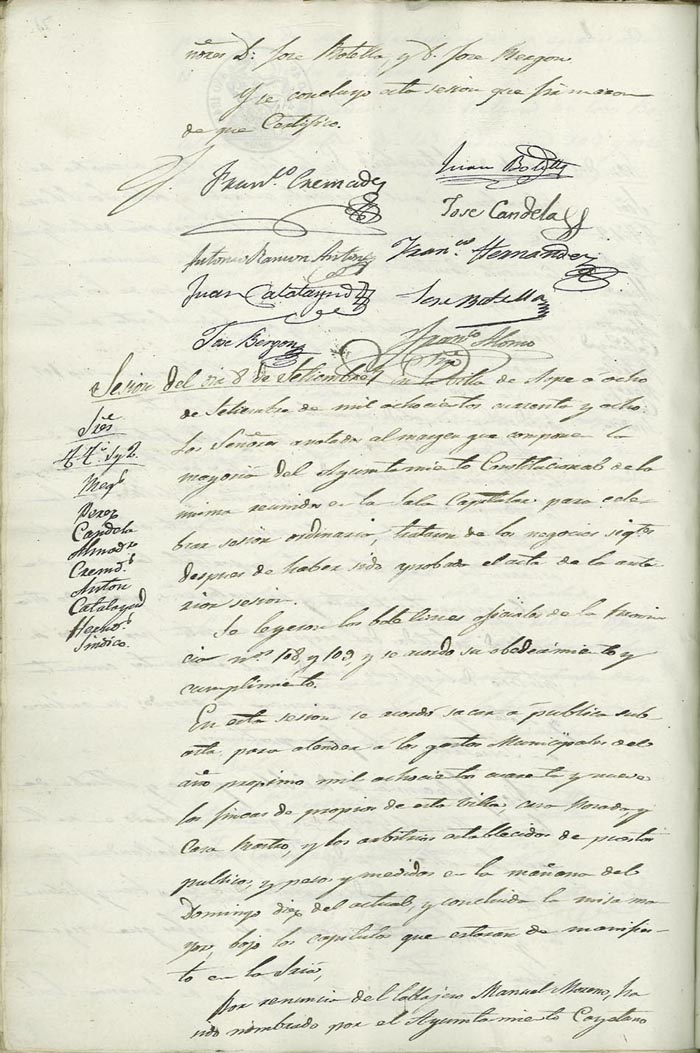 ñores D. Jose Botella, y D. Jose Bergon
Y se concluyo esta sesion que firmaron
de que Certifico.
Fran.co Cremades
Juan Botella
Jose Candela
Antonio Ramon Anton
Fran.co Hernandez
Juan Calatayud
Jose Botella
Jose Bergon
Fran.co Alonso
Srio
Sesion del dia 8 de Setiembre
En la Villa de Aspe á ocho
de Setiembre de mil ochocientos cuarenta y ocho:
Sres
Los Señores anotados al margen que compone la
mayoria del Ayuntamiento Constitucional de la
misma reunidos en la Sala Capitular para cele-
brar sesion ordinaria, trataron de los negocios sigtes
despues de haber sido aprobada el acta de la ante-
rior sesion.
Perez
Candela
Almod.r
Cremd.s
Anton
Catalayud
Hernd.s
Sindico.
Se leyeron los boletines oficiales de la Provin-
cia n.os 108, y 109, y se acordó su obedecimiento y
cumplimiento.
En esta sesion se acordó sacar á publica sub-
asta para atender á los gastos Municipales del
año procsimo mil ochocientos cuarenta y nueve
las fincas de propios de esta Villa, casa Posada, y
Casa Rastro, y los arbitrios establecidos de puestos
publicos, y pesos y medidas en la mañana del
Domingo diez del actual, y concluida la misa ma-
yor, bajo los capitulos que estaran de manifies-
to en la Sría,
Por renuncia del Manuel Moreno, ha
sido nombrado por el Ayuntamiento Cayetano